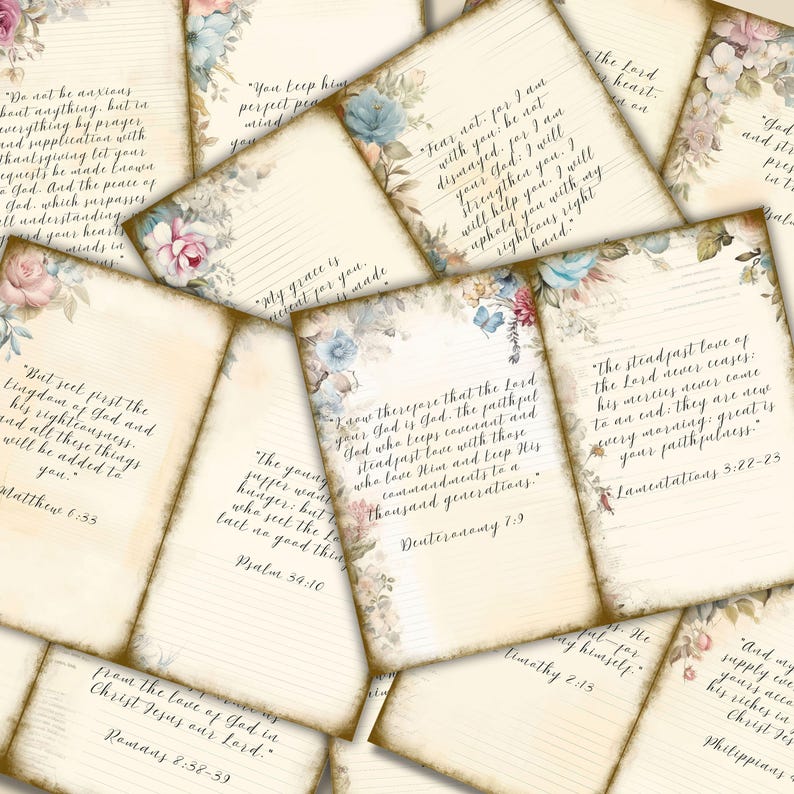 "Do not be anxious
about anything, but in
everything by prayer
and supplication with
thanksgiving let your
requests be made known
to God. And the peace of
God, which surpasses
all understanding,
guard your hearts
minds in
"You keep him
perfect peace
mind
"Fear not, for I am
with you; be not
dismayed, for I am
your God; I will
strengthen you, I
will help you, I will
uphold you with my
righteous right
hand."
the Lord
heart,
on
"God
and str
pres
in tr
Psalm
"My grace is
sufficient for you,
is made
"But seek first the
kingdom of God and
his righteousness,
and all these things
will be added to
you."
Matthew 6:33
"The young
suffer want
hunger; but th
who seek the Lo
lack no good thing
Psalm 34:10
"Know therefore that the Lord
your God is God, the faithful
God who keeps covenant and
steadfast love with those
who love Him and keep His
commandments to a
thousand generations."
Deuteronomy 7:9
"The steadfast love of
the Lord never ceases;
his mercies never come
to an end; they are new
every morning; great is
your faithfulness."
Lamentations 3:22-23
from the love of God in
Christ Jesus our Lord."
Romans 8:38-39
He
ful—for
ny himself."
Timothy 2:13
"And my
supply eve
yours acco
his riches in
Christ Jesus
Philippians